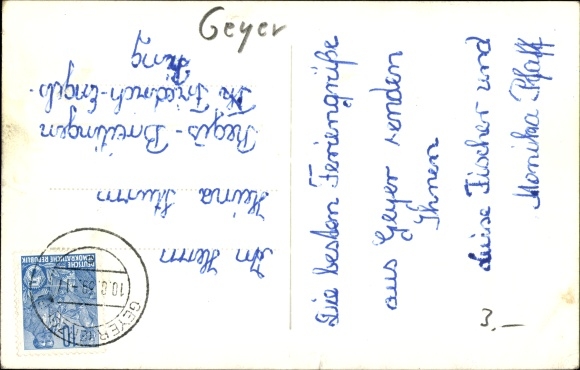 Geyer
Die besten Feriengrüße
aus Geyer senden
Ihnen
Luise Fischer und
Monika Pfaff
3,-
An Herrn
Heina Sturm
Regis-Breitingen
Friedrich-Engels-
Ring
DEUTSCHE
DEMOKRATISCHE REPUBLIK
10
GEYER